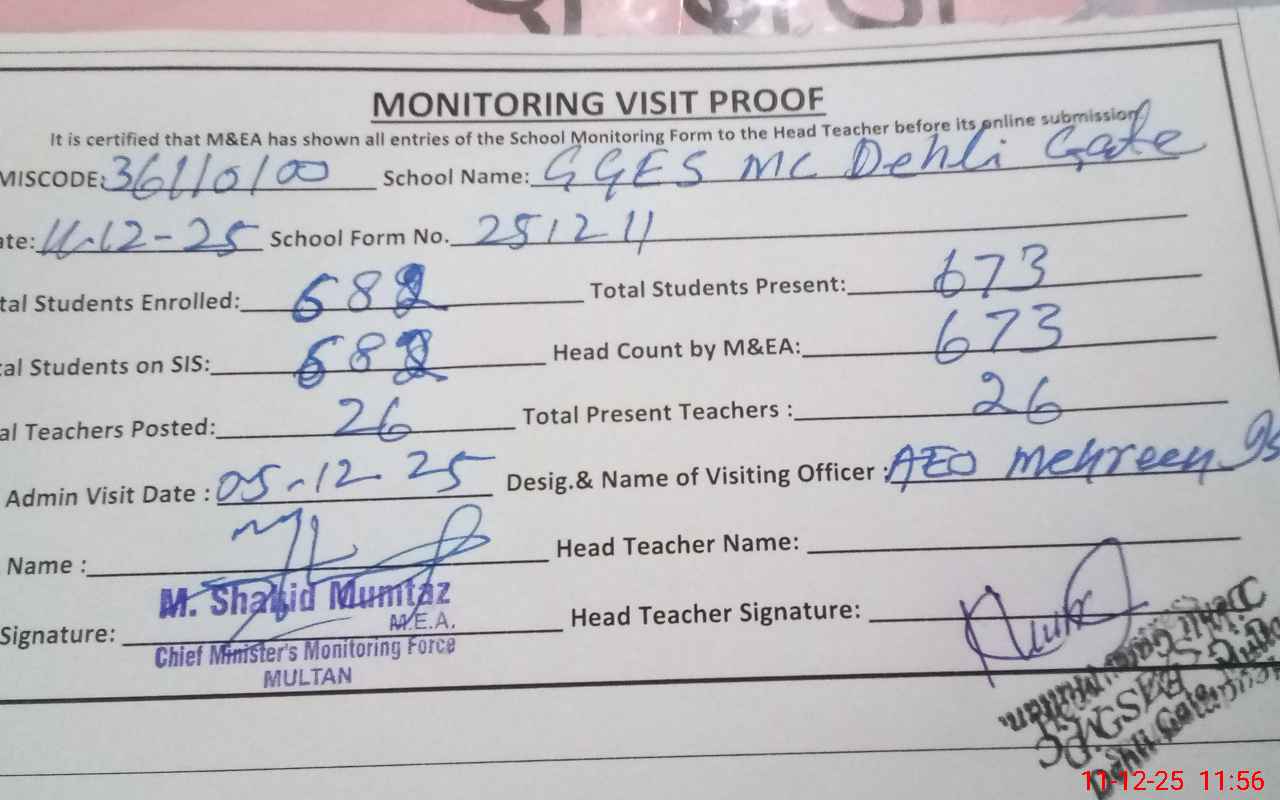 MONITORING VISIT PROOF
It is certified that M&EA has shown all entries of the School Monitoring Form to the Head Teacher before its online submission.
MISCODE: 36110100 School Name: GGES MC Dehli Gate
ate: 11-12-25 School Form No. 251211
tal Students Enrolled: 682 Total Students Present: 673
al Students on SIS: 682 Head Count by M&EA: 673
al Teachers Posted: 26 Total Present Teachers : 26
Admin Visit Date : 05-12-25 Desig.& Name of Visiting Officer : AEO Mehreen
Name : Head Teacher Name:
M. Shahid Mumtaz
M.E.A.
Signature: Head Teacher Signature:
Chief Minister's Monitoring Force
MULTAN
Dehli Gate
11-12-25 11:56